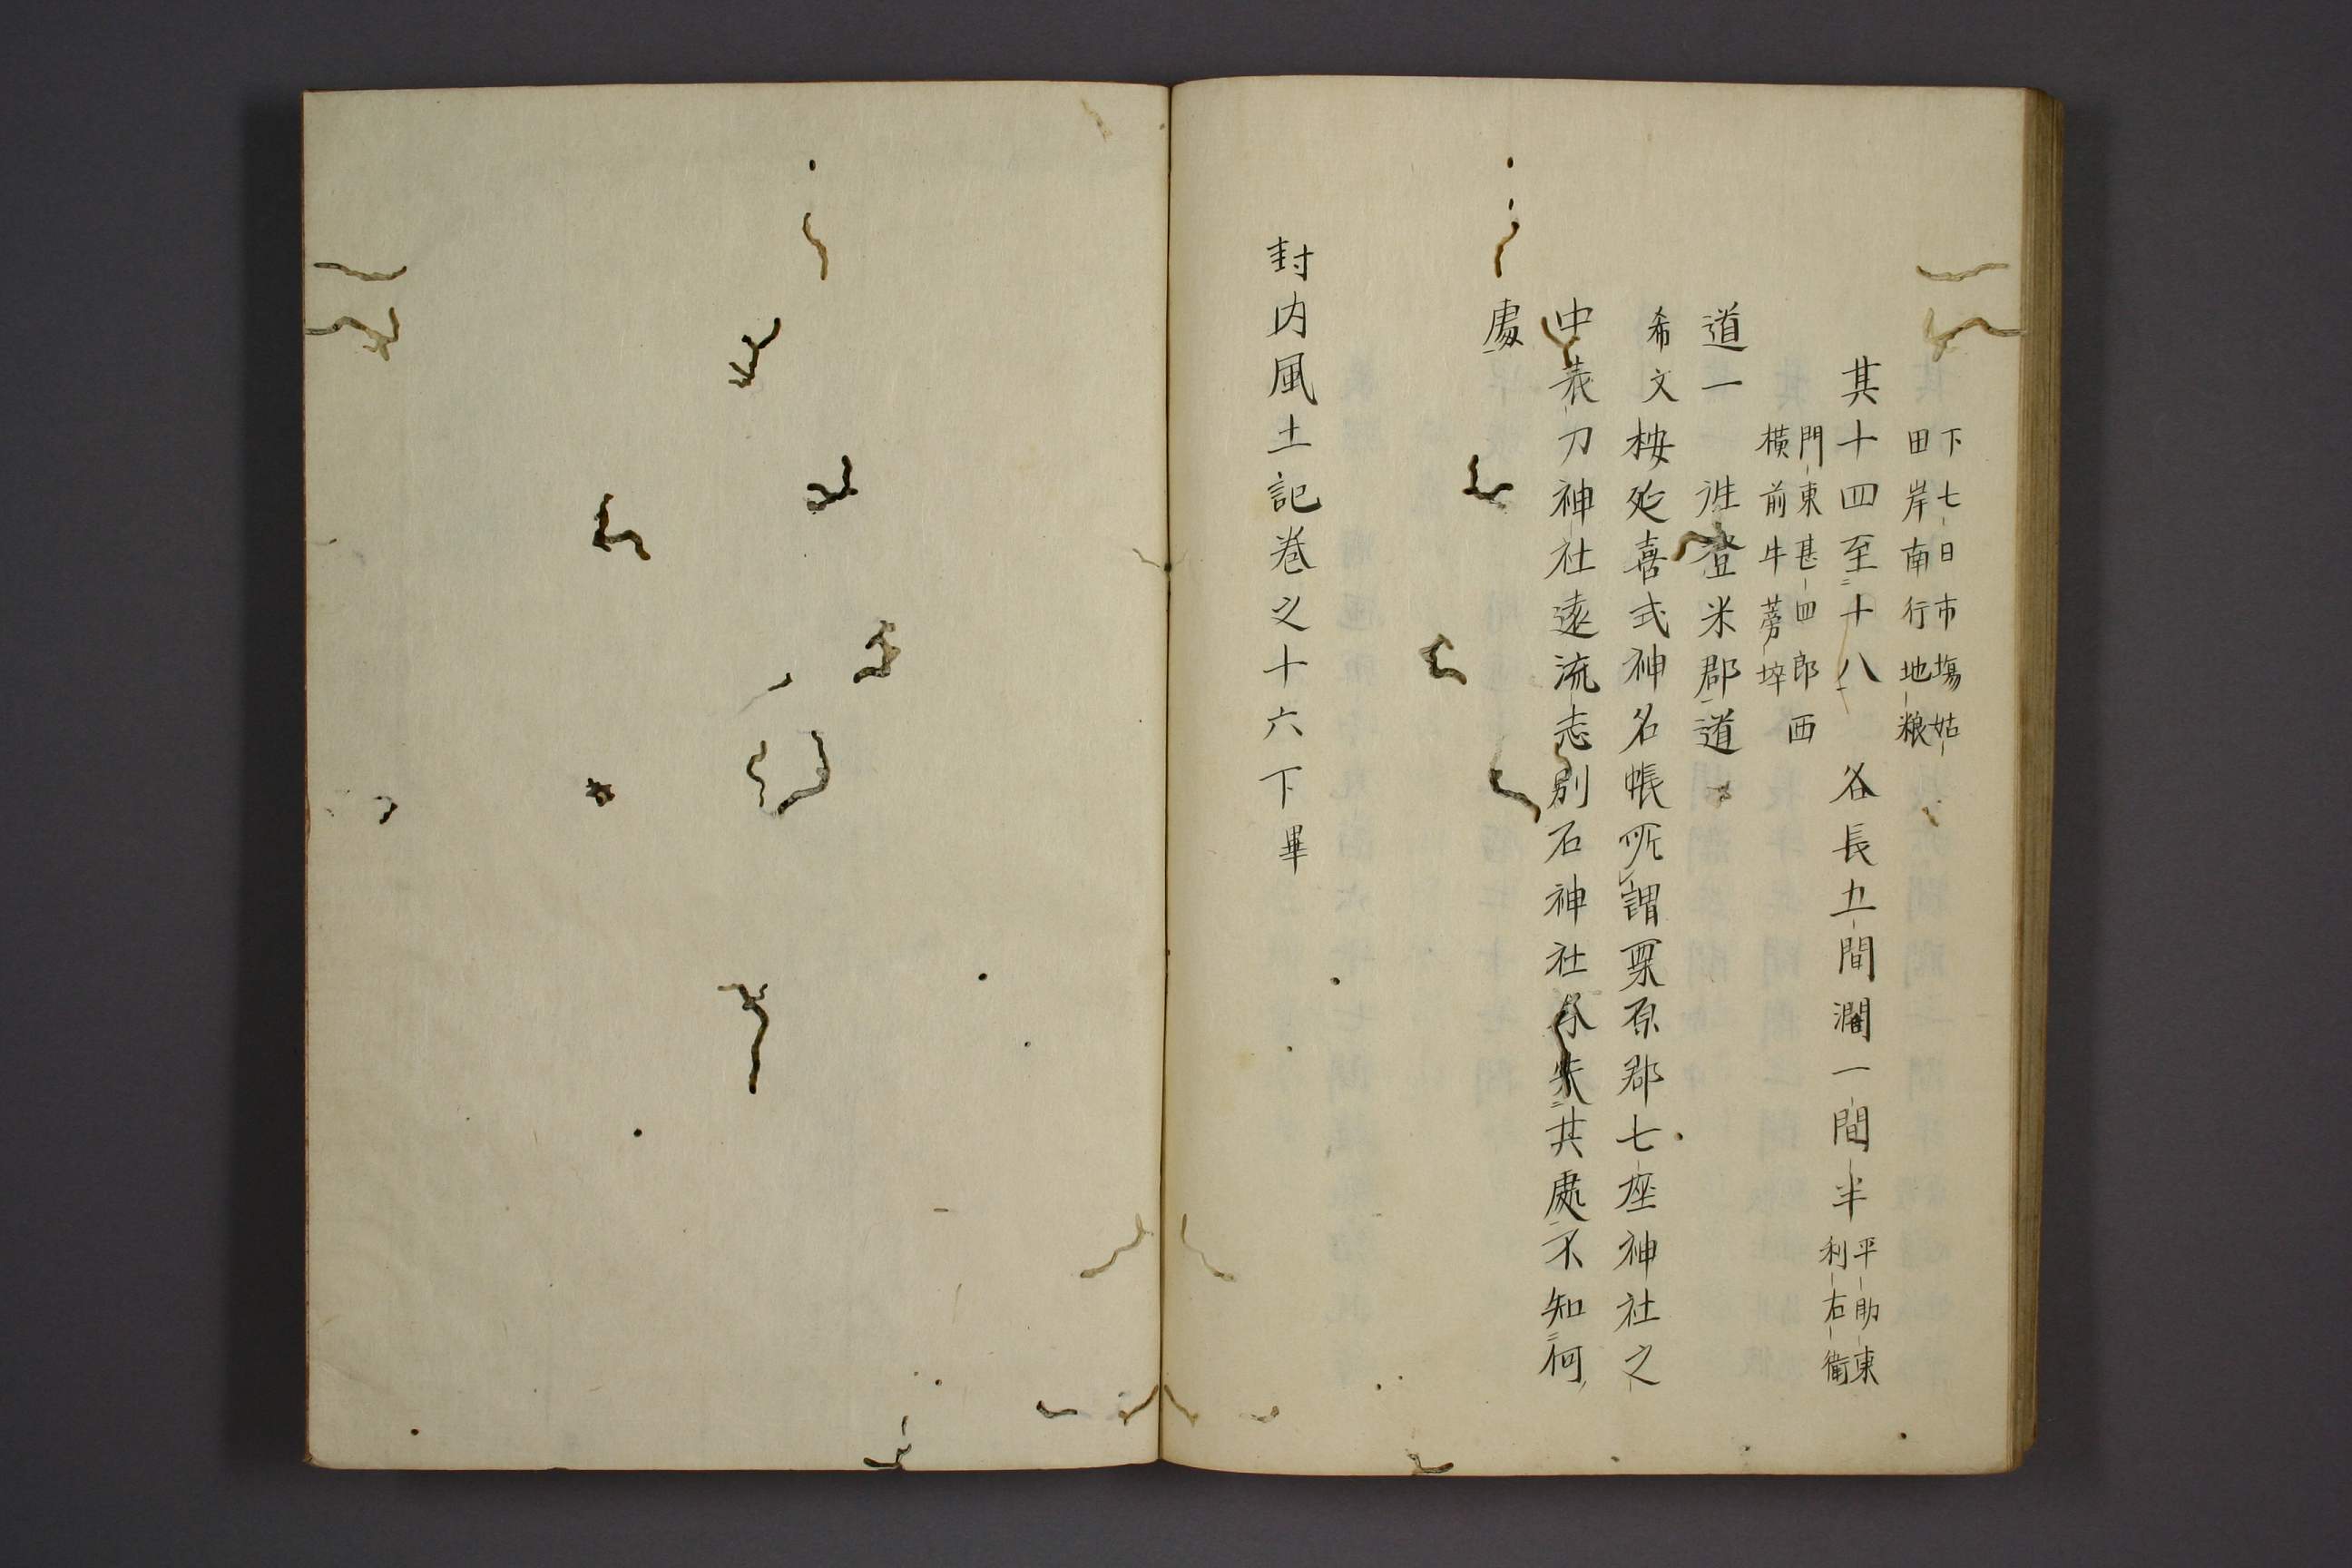 下七日市場姑
田岸南行地粮
其十四至十八 各長五間濶一間半 平助東
利右衛
門東甚四郎西
横前牛蒡埣
道一 往登米郡道
希文按延喜式神名帳所謂栗原郡七座神社之
中表刀神社遠流志別石神社各失其處不知何
處
封内風土記巻之十六下畢